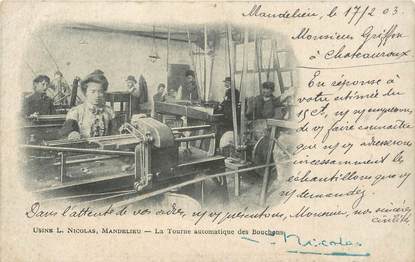 Mandelieu, le 17/2 03.
Monsieur Griffon
à Chateauroux
En réponse à
votre estimée du
15 ct, nous empressons
de vs faire connaître
que ns vs adresserons
incessamment les
échantillons que vs
ns demandez.
Dans l'attente de vos ordres, ns vs présentons, Monsieur, nos sincères
civilités.
USINE L. NICOLAS, MANDELIEU — La Tourne automatique des Bouchons
Nicolas